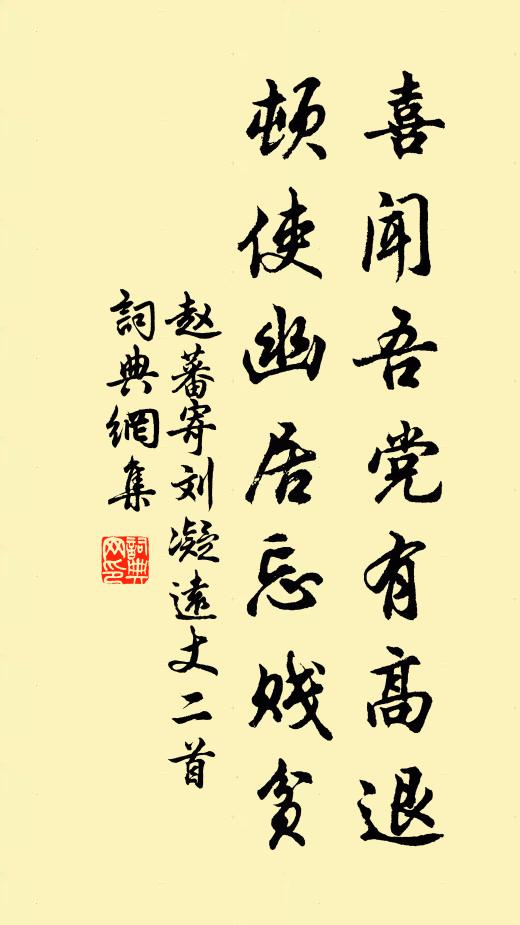 喜闻吾党有高退
顿使幽居忘贱贫
赵蕃寄刘凝远丈二首
詞典網集
詞典
网印